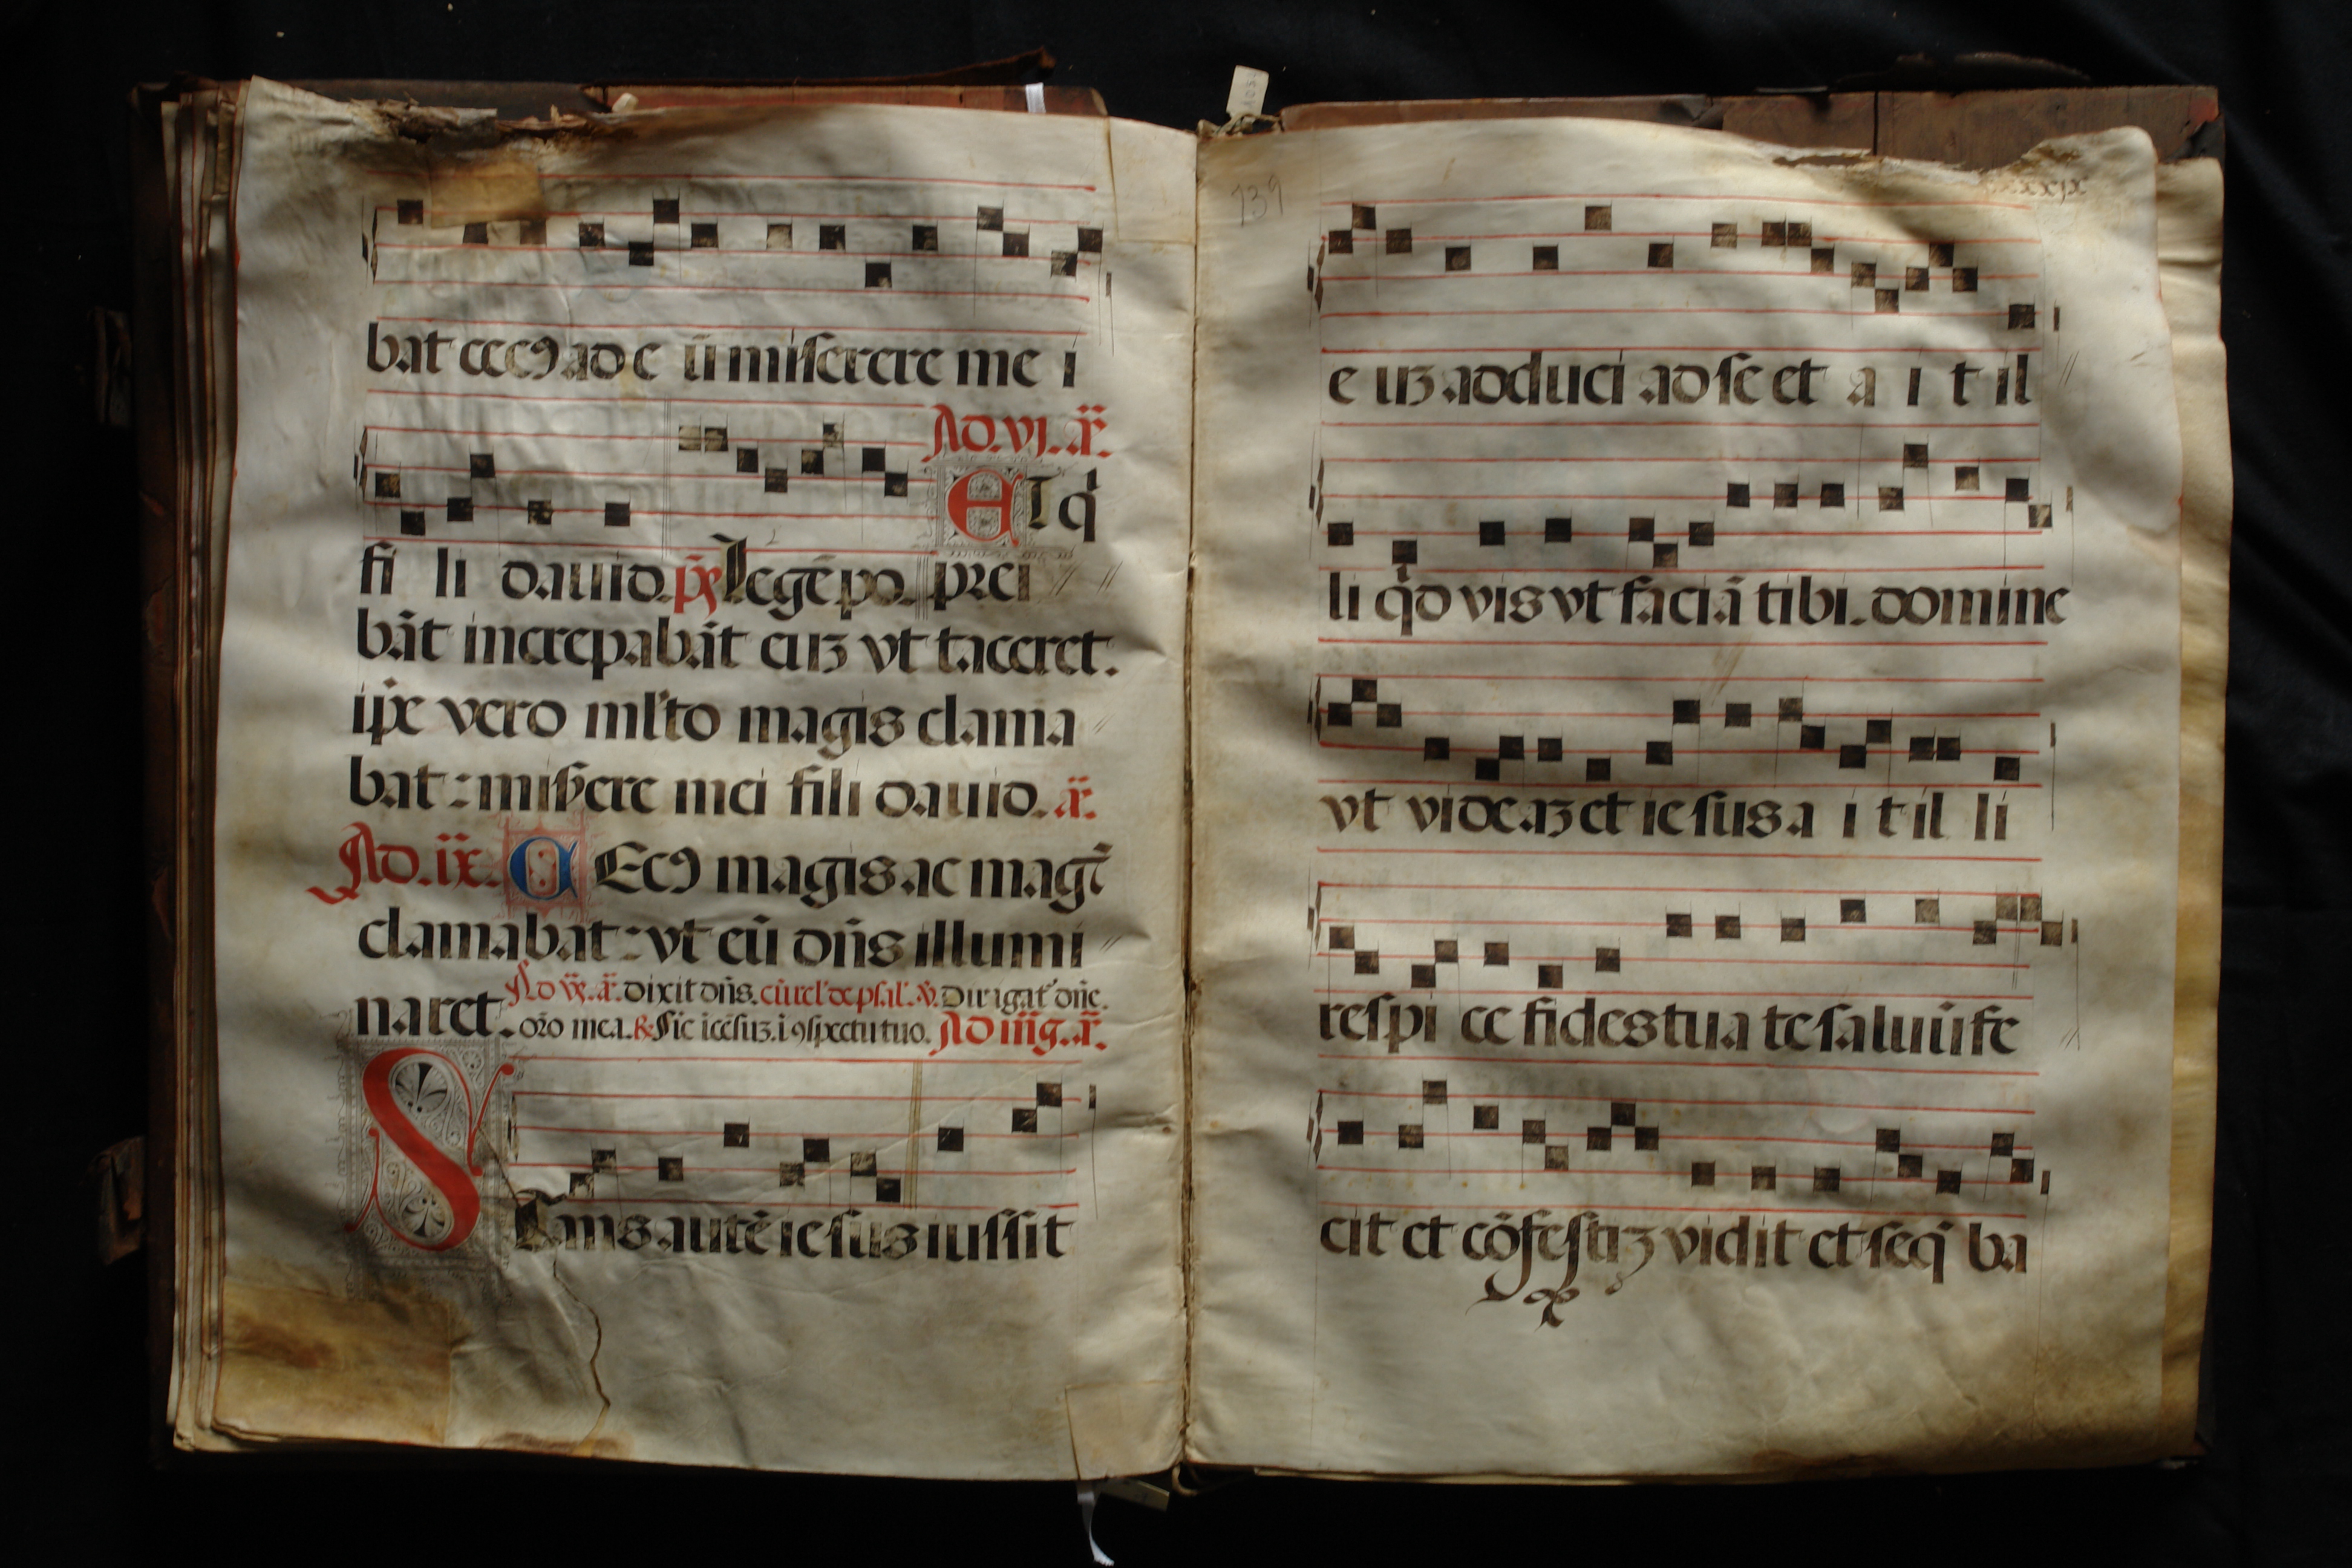 bat cecꝰ ad e ū miserere me i
Ad. vj. a̅r̅.
ET q̇
fi li dauid. p̄s̄ Legē po. prei
bāt increpabāt euꝫ vt taceret.
ip̄e vero ml'to magis clama
bat: mis̄ere mei fili dauid. a̅r̅.
Ad. ix. CEcꝰ magis ac magꝭ
clamabat: vt eū dn̄s illumi
naret. Ad vr̄. a̅r̅. dixit dn̄s. cū rel' de psal'. v̄. Dirigat' dn̄e.
oro mea. R Sic īcēsuꝫ. ī ꝯspectu tuo. Ad m̄g. a̅r̅.
Stans autē iesus iussit
739
xxix
e uꝫ adduci ad se et a i t il
li q̇d vis vt faciā tibi. domine
vt videaꝫ et iesus a i t il li
respi ce fides tua te saluū fe
cit et cōfestiꝫ vidit et seq̄ ba